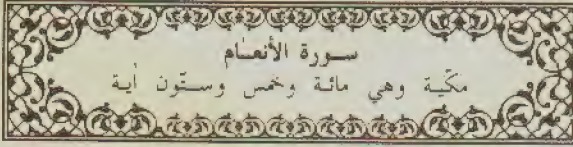 سورة الأنعام
مكّية وهي مائة وخمس وستّون أية